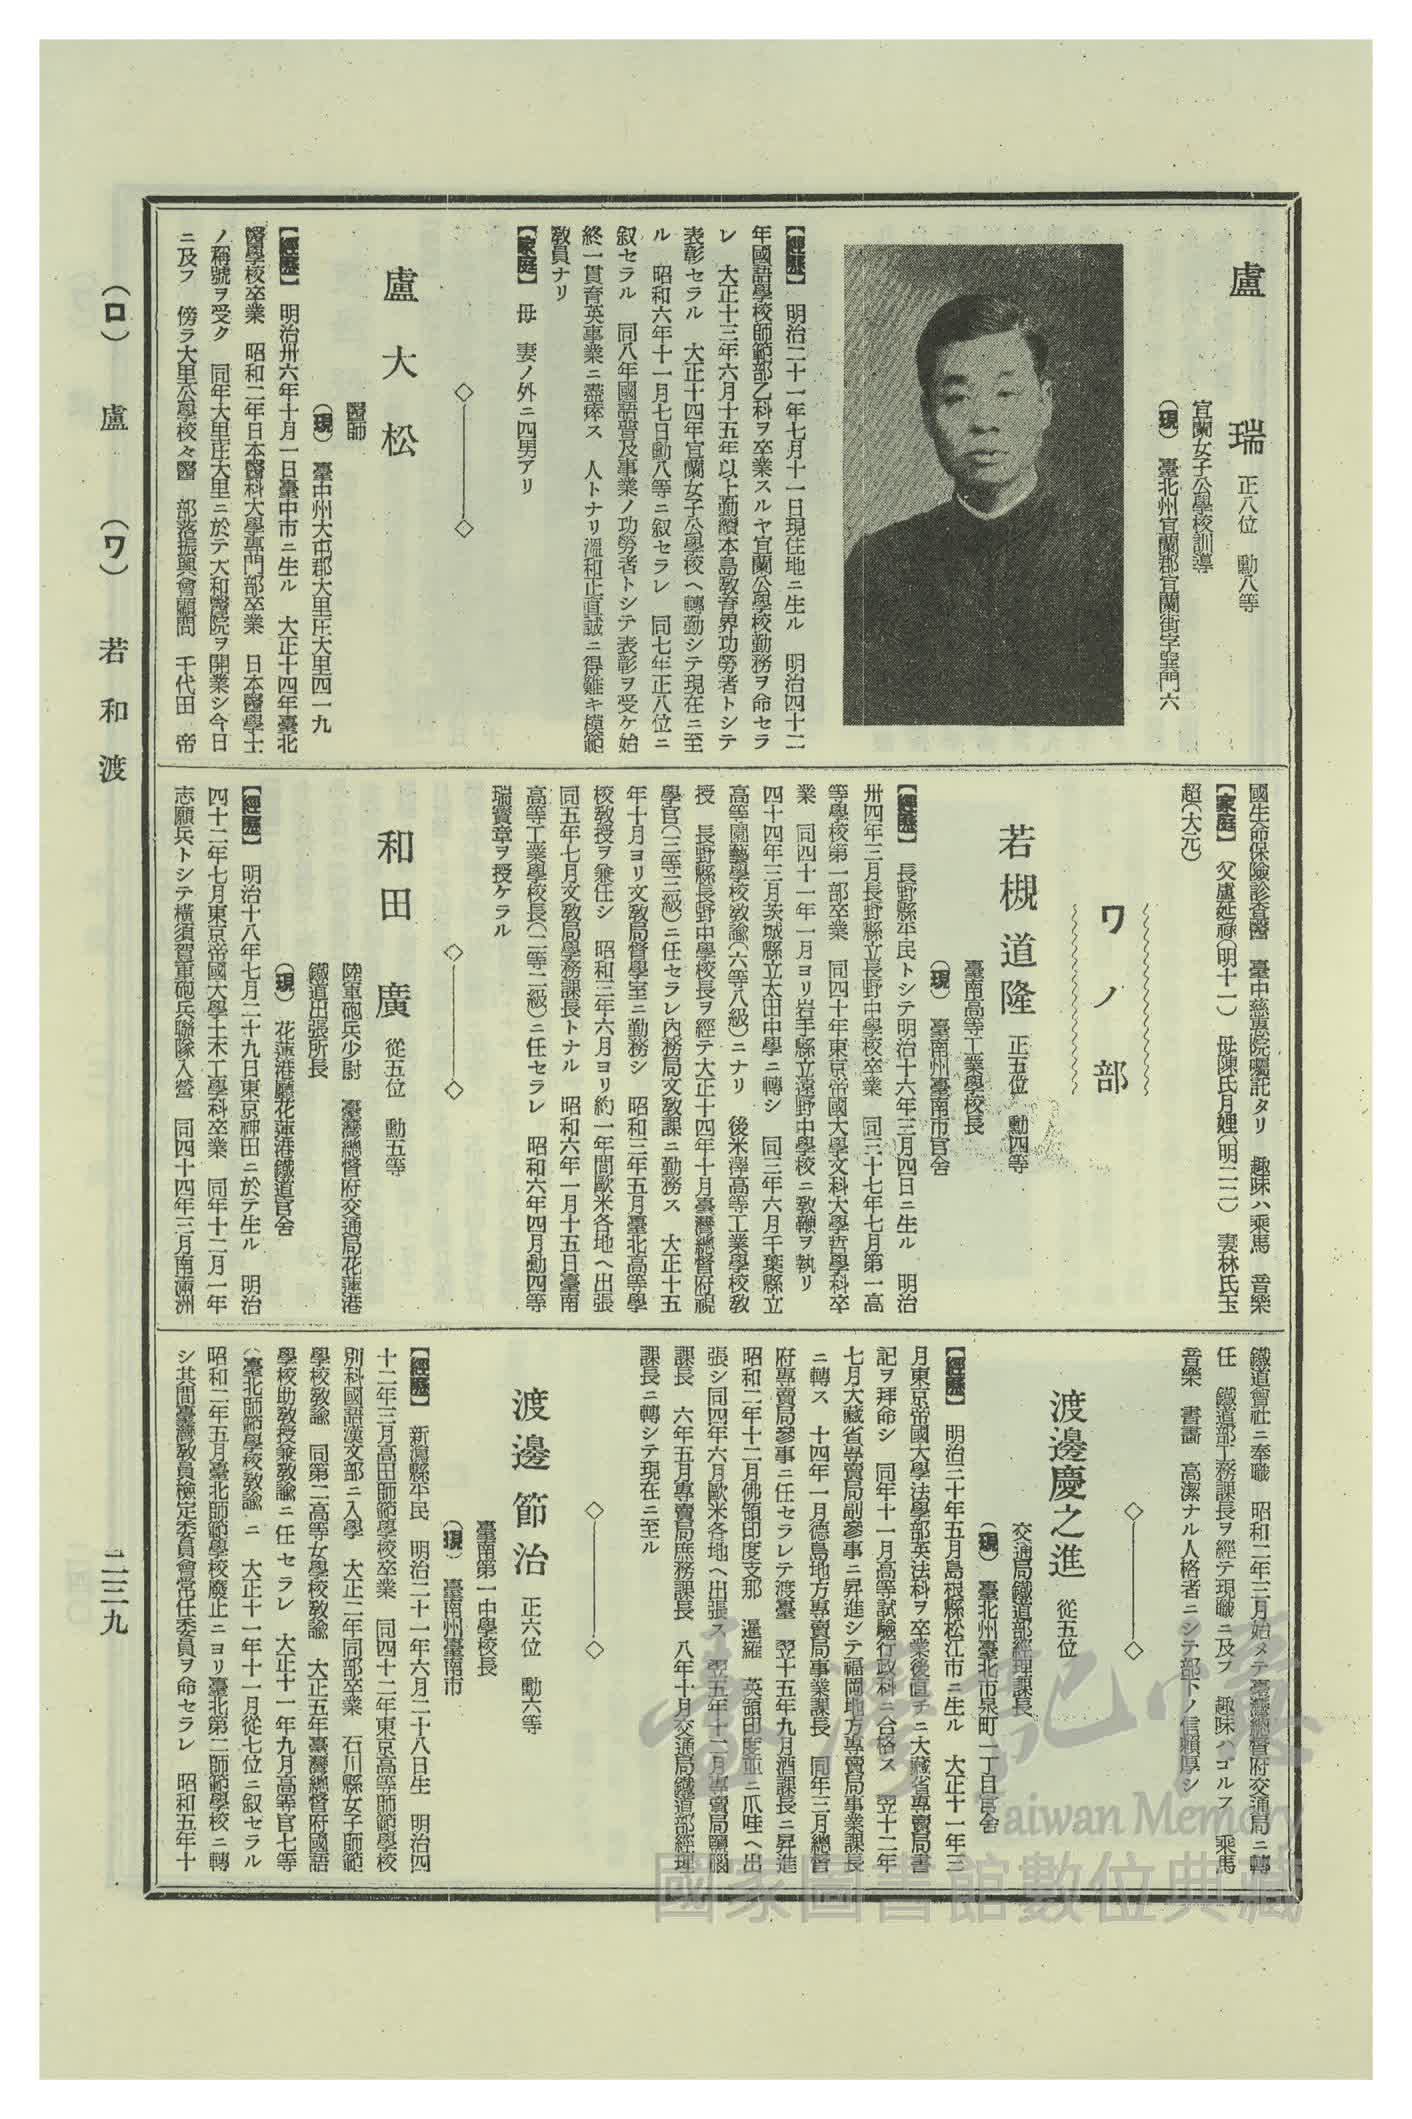 盧　瑞　正八位　勳八等
宜蘭女子公學校訓導
（現）　臺北州宜蘭郡宜蘭街字巽門六
【經歷】　明治二十一年七月十一日現住地ニ生ル　明治四十二
年國語學校師範部乙科ヲ卒業スルヤ宜蘭公學校勤務ヲ命セラ
レ　大正十三年六月十五年以上勤續本島敎育界功勞者トシテ
表彰セラル　大正十四年宜蘭女子公學校ヘ轉勤シテ現在ニ至
ル　昭和六年十一月七日勳八等ニ叙セラレ　同七年正八位ニ
叙セラル　同八年國語普及事業ノ功勞者トシテ表彰ヲ受ケ始
終一貫育英事業ニ盡瘁ス　人トナリ溫和正直誠ニ得難キ模範
敎員ナリ
【家庭】　母　妻ノ外ニ四男アリ
盧大松
醫師
（現）　臺中州大屯郡大里庄大里四一九
【經歷】　明治卅六年十月一日臺中市ニ生ル　大正十四年臺北
醫學校卒業　昭和二年日本醫科大學專門部卒業　日本醫學士
ノ稱號ヲ受ク　同年大里庄大里ニ於テ大和醫院ヲ開業シ今日
ニ及フ　傍ラ大里公學校々醫　部落振興會顧問　千代田　帝
國生命保險診查醫　臺中慈惠院囑託タリ　趣味ハ乘馬　音樂
【家庭】　父盧延祿（明十一）　母陳氏月娌（明二二）　妻林氏玉
超（大元）
ワノ部
若槻道隆　正五位　勳四等
臺南高等工業學校長
（現）　臺南州臺南市官舍
【經歷】　長野縣平民トシテ明治十六年三月四日ニ生ル　明治
卅四年三月長野縣立長野中學校卒業　同三十七年七月第一高
等學校第一部卒業　同四十年東京帝國大學文科大學哲學科卒
業　同四十一年一月ヨリ岩手縣立遠野中學校ニ敎鞭ヲ執リ
四十四年三月茨城縣立太田中學ニ轉シ　同三年六月千葉縣立
高等園藝學校敎諭（六等八級）ニナリ　後米澤高等工業學校敎
授　長野縣長野中學校長ヲ經テ大正十四年十月臺灣總督府視
學官（三等三級）ニ任セラレ內務局文敎課ニ勤務ス　大正十五
年十月ヨリ文敎局督學室ニ勤務シ　昭和三年五月臺北高等學
校敎授ヲ兼任シ　昭和三年六月ヨリ約一年間歐米各地ヘ出張
同五年七月文敎局學務課長トナル　昭和六年一月十五日臺南
高等工業學校長（二等二級）ニ任セラレ　昭和六年四月勳四等
瑞寶章ヲ授ケラル
和田廣　從五位　勳五等
陸軍砲兵少尉　臺灣總督府交通局花蓮港
鐵道出張所長
（現）　花蓮港廳花蓮港鐵道官舍
【經歷】　明治十八年七月二十九日東京神田ニ於テ生ル　明治
四十二年七月東京帝國大學土木工學科卒業　同年十二月一年
志願兵トシテ橫須賀重砲兵聯隊入營　同四十四年三月南滿洲
鐵道會社ニ奉職　昭和二年三月始メテ臺灣總督府交通局ニ轉
任　鐵道部工務課長ヲ經テ現職ニ及フ　趣味ハゴルフ　乘馬
音樂　書畵　高潔ナル人格者ニシテ部下ノ信賴厚シ
渡邊慶之進　從五位
交通局鐵道部經理課長
（現）　臺北州臺北市泉町一丁目官舍
【經歷】　明治三十年五月島根縣松江市ニ生ル　大正十一年三
月東京帝國大學法學部英法科ヲ卒業後直チニ大藏省專賣局書
記ヲ拜命シ　同年十一月高等試驗行政科ニ合格ス　翌十二年
七月大藏省專賣局副參事ニ昇進シテ福岡地方專賣局事業課長
ニ轉ス　十四年一月德島地方專賣局事業課長　同年三月總督
府專賣局參事ニ任セラレテ渡臺　翌十五年九月酒課長ニ昇進
昭和二年十二月佛領印度支那　暹羅　英領印度並ニ爪哇ヘ出
張シ同四年六月歐米各地ヘ出張ス　翌五年十二月專賣局鹽腦
課長　六年五月專賣局庶務課長　八年十月交通局鐵道部經理
課長ニ轉シテ現在ニ至ル
渡邊節治　正六位　勳六等
臺南第一中學校長
（現）　臺南州臺南市
【經歷】　新潟縣平民　明治二十一年六月二十八日生　明治四
十二年三月高田師範學校卒業　同四十二年東京高等師範學校
別科國語漢文部ニ入學　大正二年同部卒業　石川縣女子師範
學校敎諭　同第二高等女學校敎諭　大正五年臺灣總督府國語
學校助敎授兼敎諭ニ任セラレ　大正十一年九月高等官七等
（臺北師範學校敎諭）ニ　大正十一年十一月從七位ニ叙セラル
昭和二年五月臺北師範學校廢止ニヨリ臺北第二師範學校ニ轉
シ其間臺灣敎員檢定委員會常任委員ヲ命セラレ　昭和五年十
（ロ）盧　（ワ）若和渡　二三九
臺灣記憶
Taiwan Memory
國家圖書館數位典藏